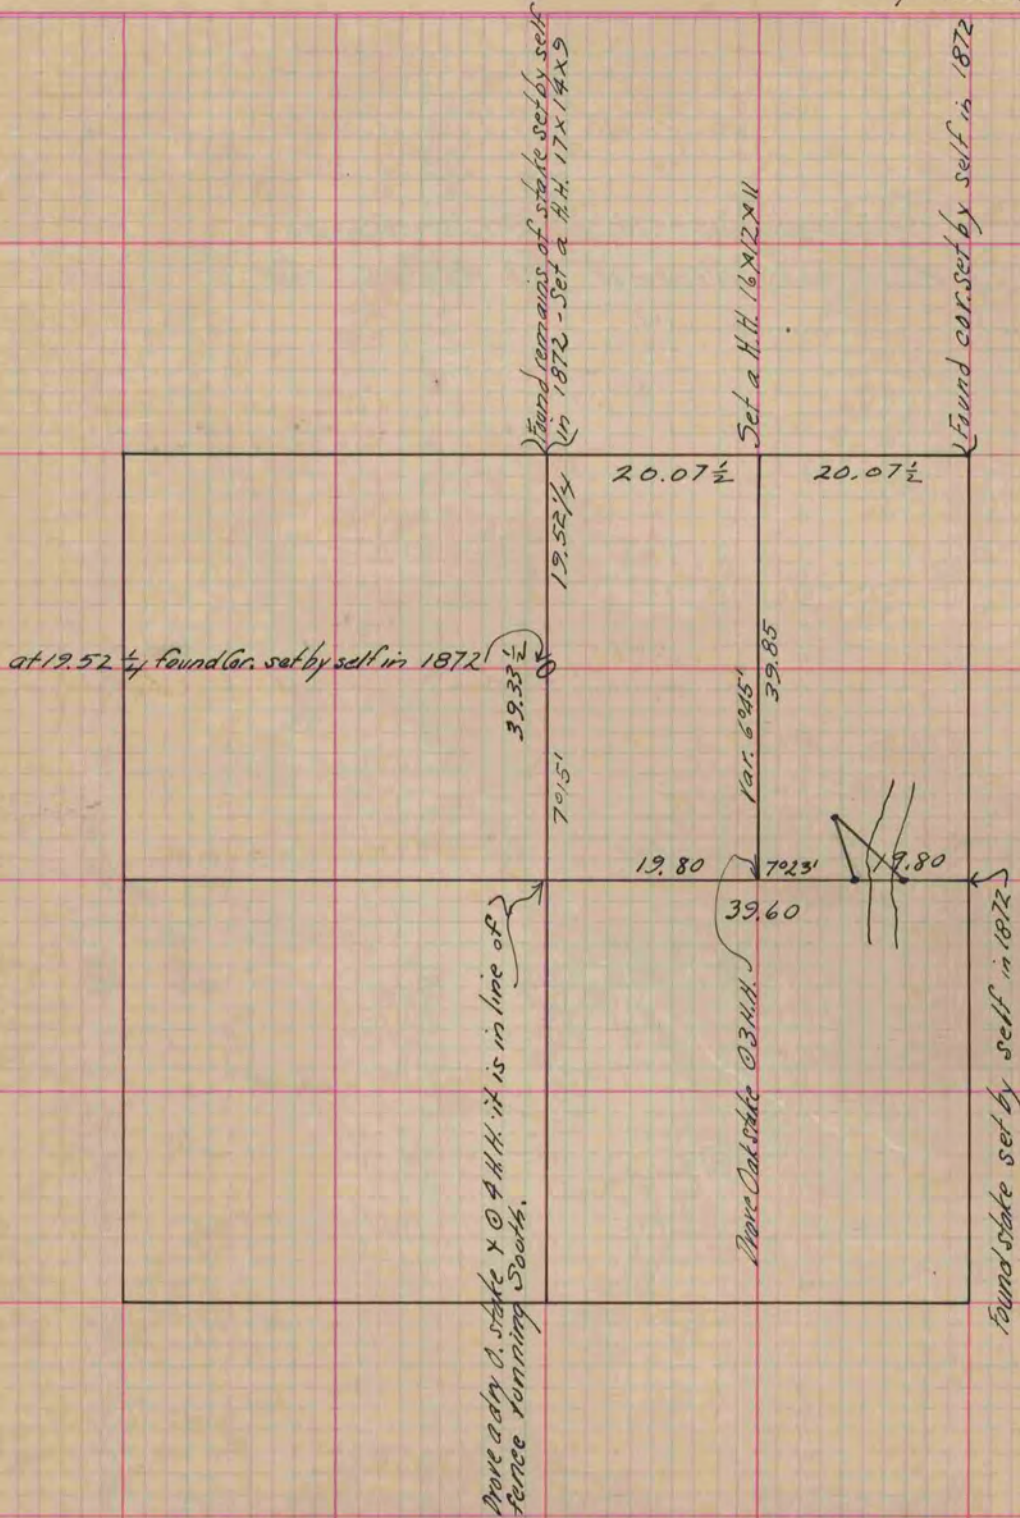 Found remains of stake set by self
in 1872 - Set a H.H. 17x14x9
Set a H.H. 16x12x11
Found cor. set by self in 1872
20.07½
20.07½
19.52¼
at 19.52¼ found Cor. set by self in 1872
39.33½
7°15'
Var. 6°45'
39.85
19.80
7°23'
19.80
39.60
Drove a dry O. stake & ⊙ 4 H.H. it is in line of
fence running South.
Drove Oak stake ⊙ 3 H.H.
Found stake set by self in 1872